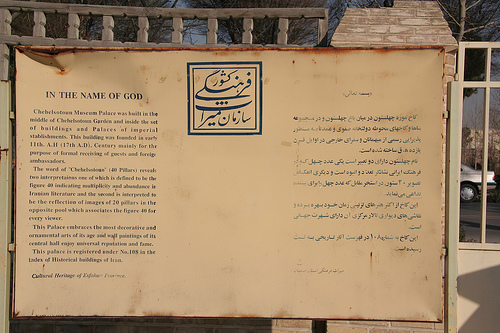 IN THE NAME OF GOD
Chehelsotoun Museum Palace was built in the
middle of Chehelsotoun Garden and inside the set
of buildings and Palaces of imperial
establishments. This building was founded in early
11th. A.H (17th A.D). Century mainly for the
purpose of formal receiving of guests and foreige
ambassadors.
The word of "Chehelsotoun" (40 Pillars) reveals
two interpretaions one of which is defined to be the
figure 40 indicating multiplicity and abundance in
Iranian literature and the second is interpreted to
be the reflection of images of 20 pillars in the
opposite pool which associates the figure 40 for
every viewer.
This Palace embraces the most decorative and
ornamental arts of its age and wall paintings of its
central hall enjoy universal reputation and fame.
This palace is registered under No.108 in the
index of Historical buildings of Iran.
Cultural Heritage of Esfahan Province.
سازمان میراث فرهنگی کشور
کاخ موزه چهلستون در میان باغ چهلستون و در مجموعه
پذیرایی رسمی از میهمانان و سفرای خارجی در اوایل قرن
یازده ه.ق ساخته شده است.
نام چهلستون دارای دو تعبیر است یکی عدد چهل که در
فرهنگ ایرانی نشانگر تعدد و انبوه است و دیگری انعکاس
تصویر ۲۰ ستون در استخر مقابل که عدد چهل را برای بیننده
تداعی می‌نماید
این کاخ از اکثر هنرهای تزئینی زمان خود بهره برده و
نقاشی‌های دیواری تالار مرکزی آن دارای شهرت جهانی
است.
این کاخ به شماره ۱۰۸ در فهرست آثار تاریخی به ثبت
رسیده است.